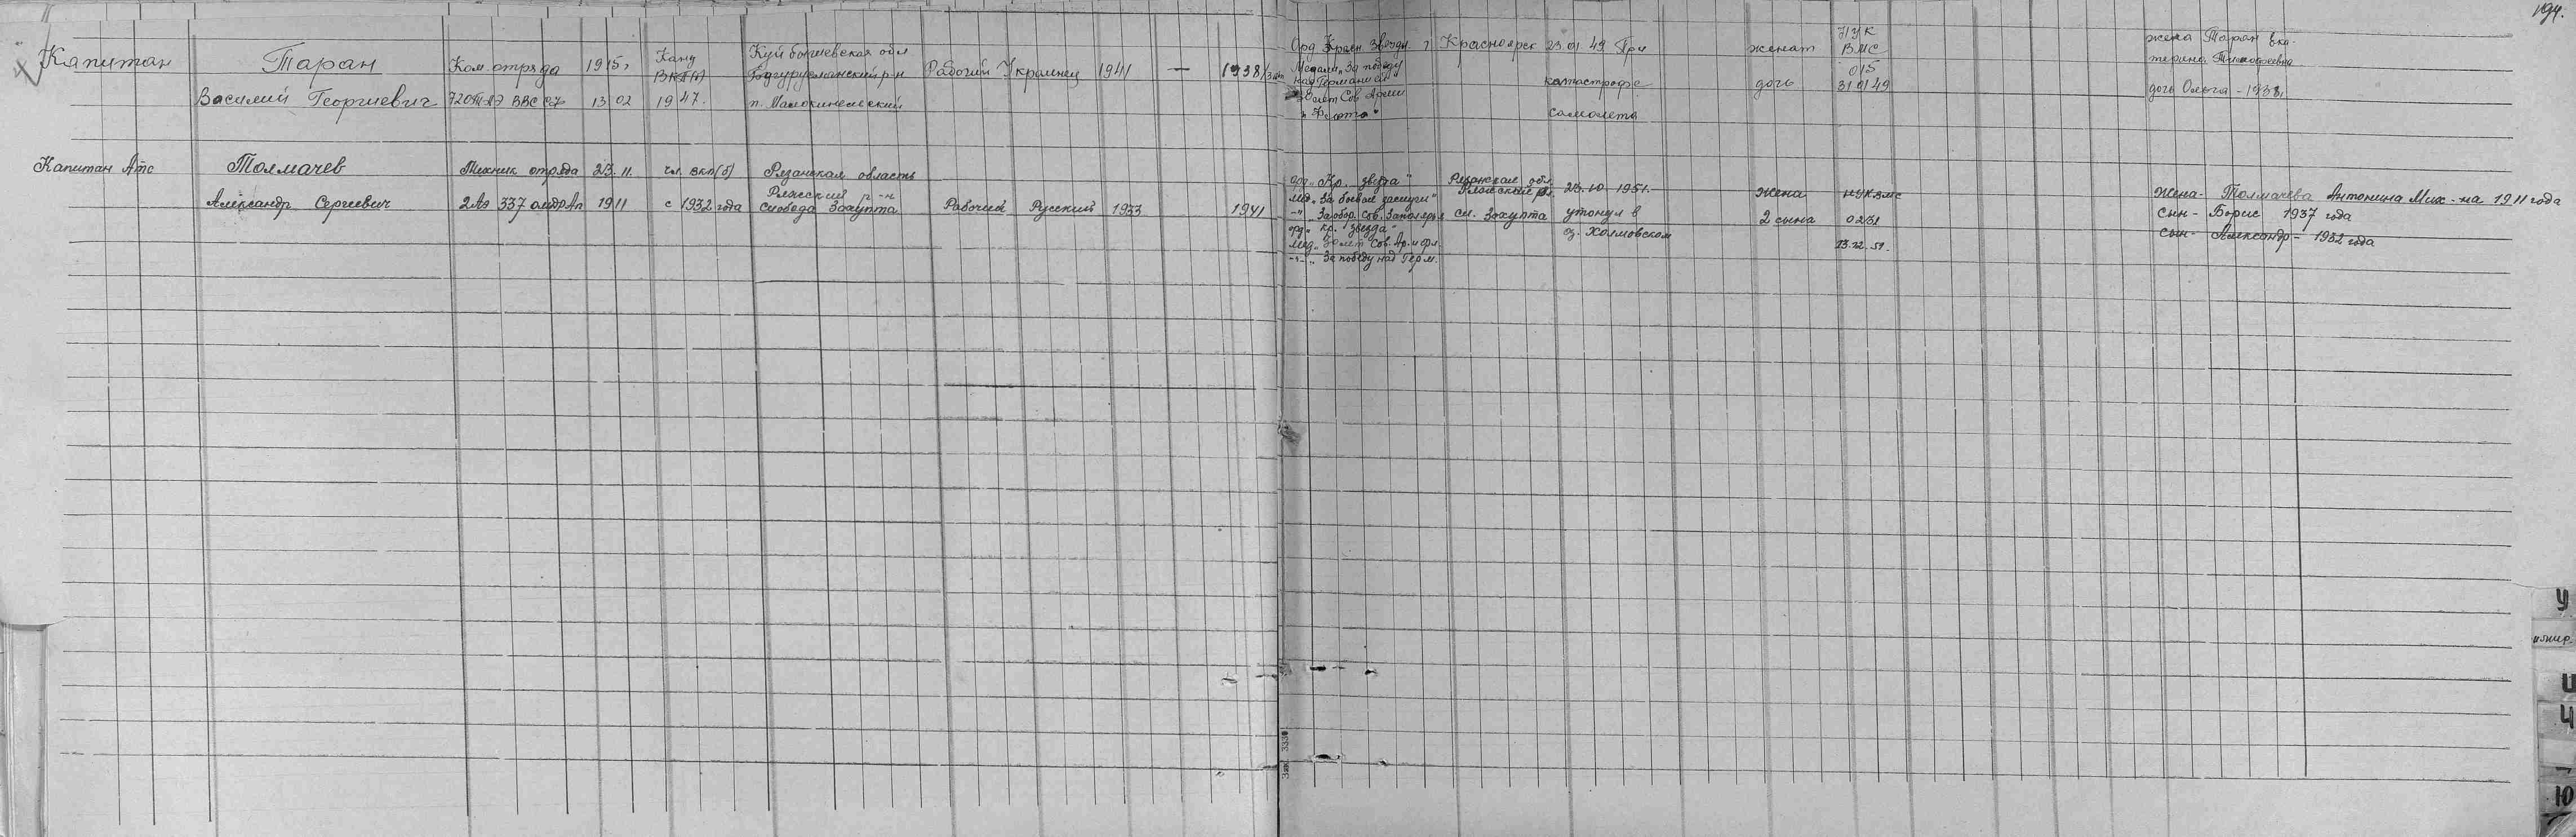 194.
Капитан
Таран
Василий Георгиевич
Ком отряда
720ТАЭ ВВС
1915г
13 02
Канд
1947.
Куйбышевская обл
п.
Рабочий
Украинец
1941
—
1938
Орд Красн. Звезды
Медали „За победу
над Германией"
Сов Армии
и Флота"
Красноярск
23.01.49 При
катастрофе
самолета
женат
дочь
ПУК
ВМС
015
31.01.49
жена Таран Ека-
терина Тимофеевна
дочь Ольга – 1938г
Капитан Атс
Толмачев
Александр Сергеевич
Техник отряда
2 Аэ 337
23. 11.
1911
чл. ВКП(б)
с 1932 года
Рязанская область
Ряжский р-н
Слобода Захупта
Рабочий
Русский
1933
1941
орд „Кр. звезда"
мед „За боевые заслуги"
-"- „За обор. Сов. Заполярья
орд „Кр. звезда"
мед „30 лет Сов. Ар. и фл.
-"- „За победу над Герм.
Рязанская обл.
Ряжский
Захупта
23.10 1951.
утонул в
оз. Холмовском
Жена
2 сына
ПУК ВМС
0231
13.12.51.
Жена- Толмачева Антонина Мих-на 1911 года
сын- Борис 1937 года
сын- Александр- 1932 года
Зак. 3330
У
Ц
Ч
Ю